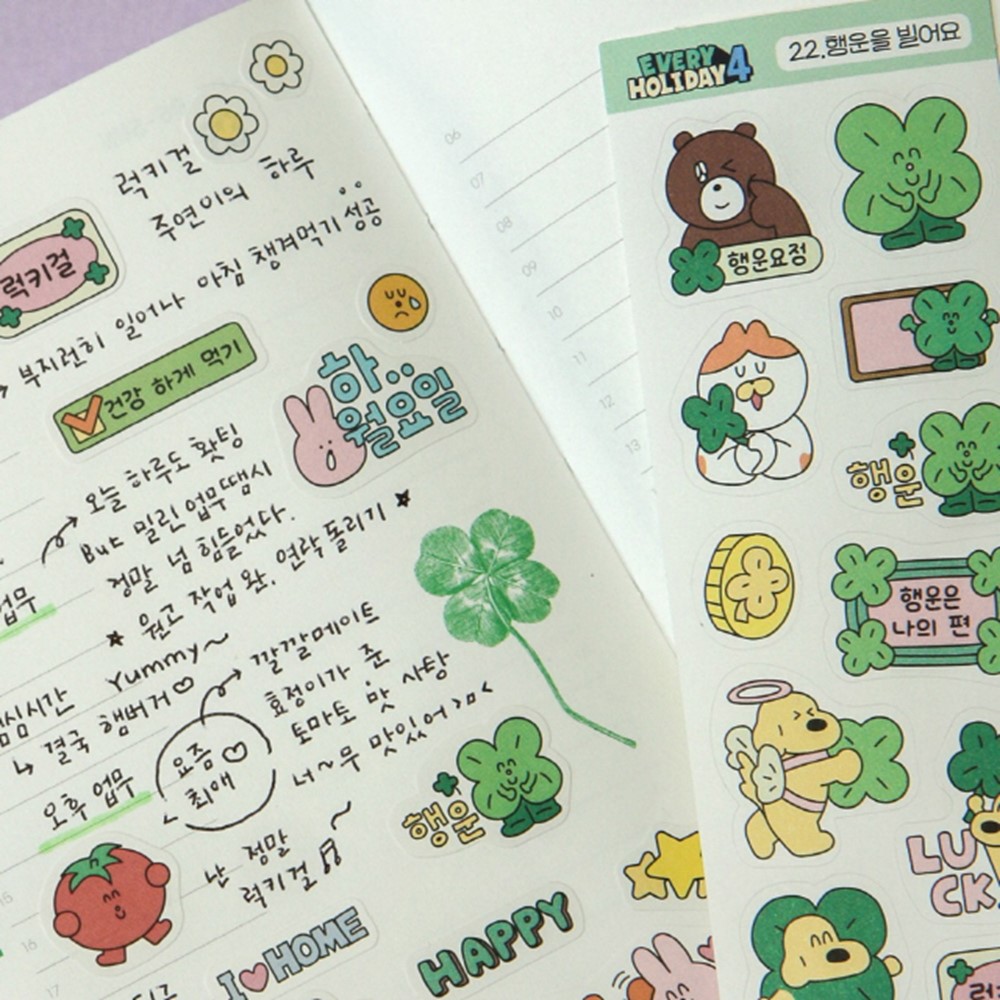 럭키걸
주연이의 하루
럭키걸
부지런히 일어나 아침 챙겨먹기 성공
건강하게 먹기
하..
월요일
오늘 하루도 홧팅
But 밀린 업무땜시
정말 넘 힘들었다.
업무
★ 원고 작업 완. 연락 돌리기 ★
Yummy~
심시간
↳ 결국 햄버거♡
깔깔메이트
효정이가 준
토마토 맛 사탕
너~무 맛있어
요즘♡
최애
오후 업무
행운
난 정말
럭키걸
I♥HOME
HAPPY
06
07
08
09
10
11
12
13
15
16
17
EVERY
HOLIDAY4
22.행운을 빌어요
행운요정
행운
행운은
나의 편
LU
CK